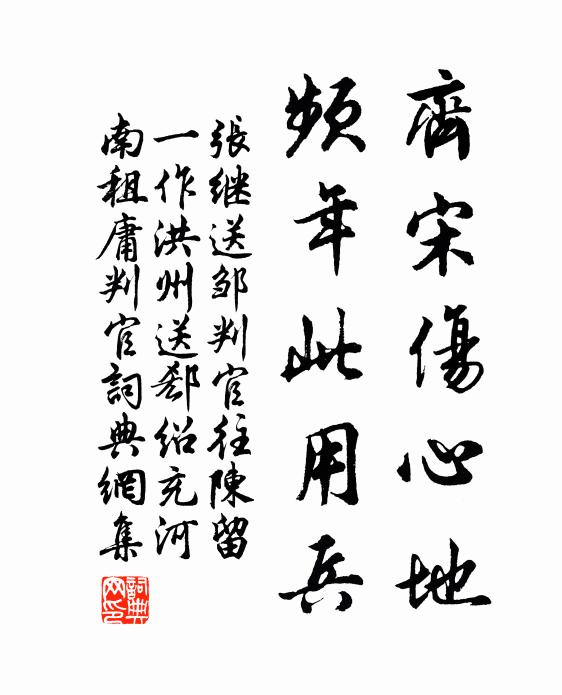 齊宋傷心地
頻年此用兵
張继送邹判官往陳留
一作洪州送郄绍充河
南租庸判官詞典網集
詞典网印